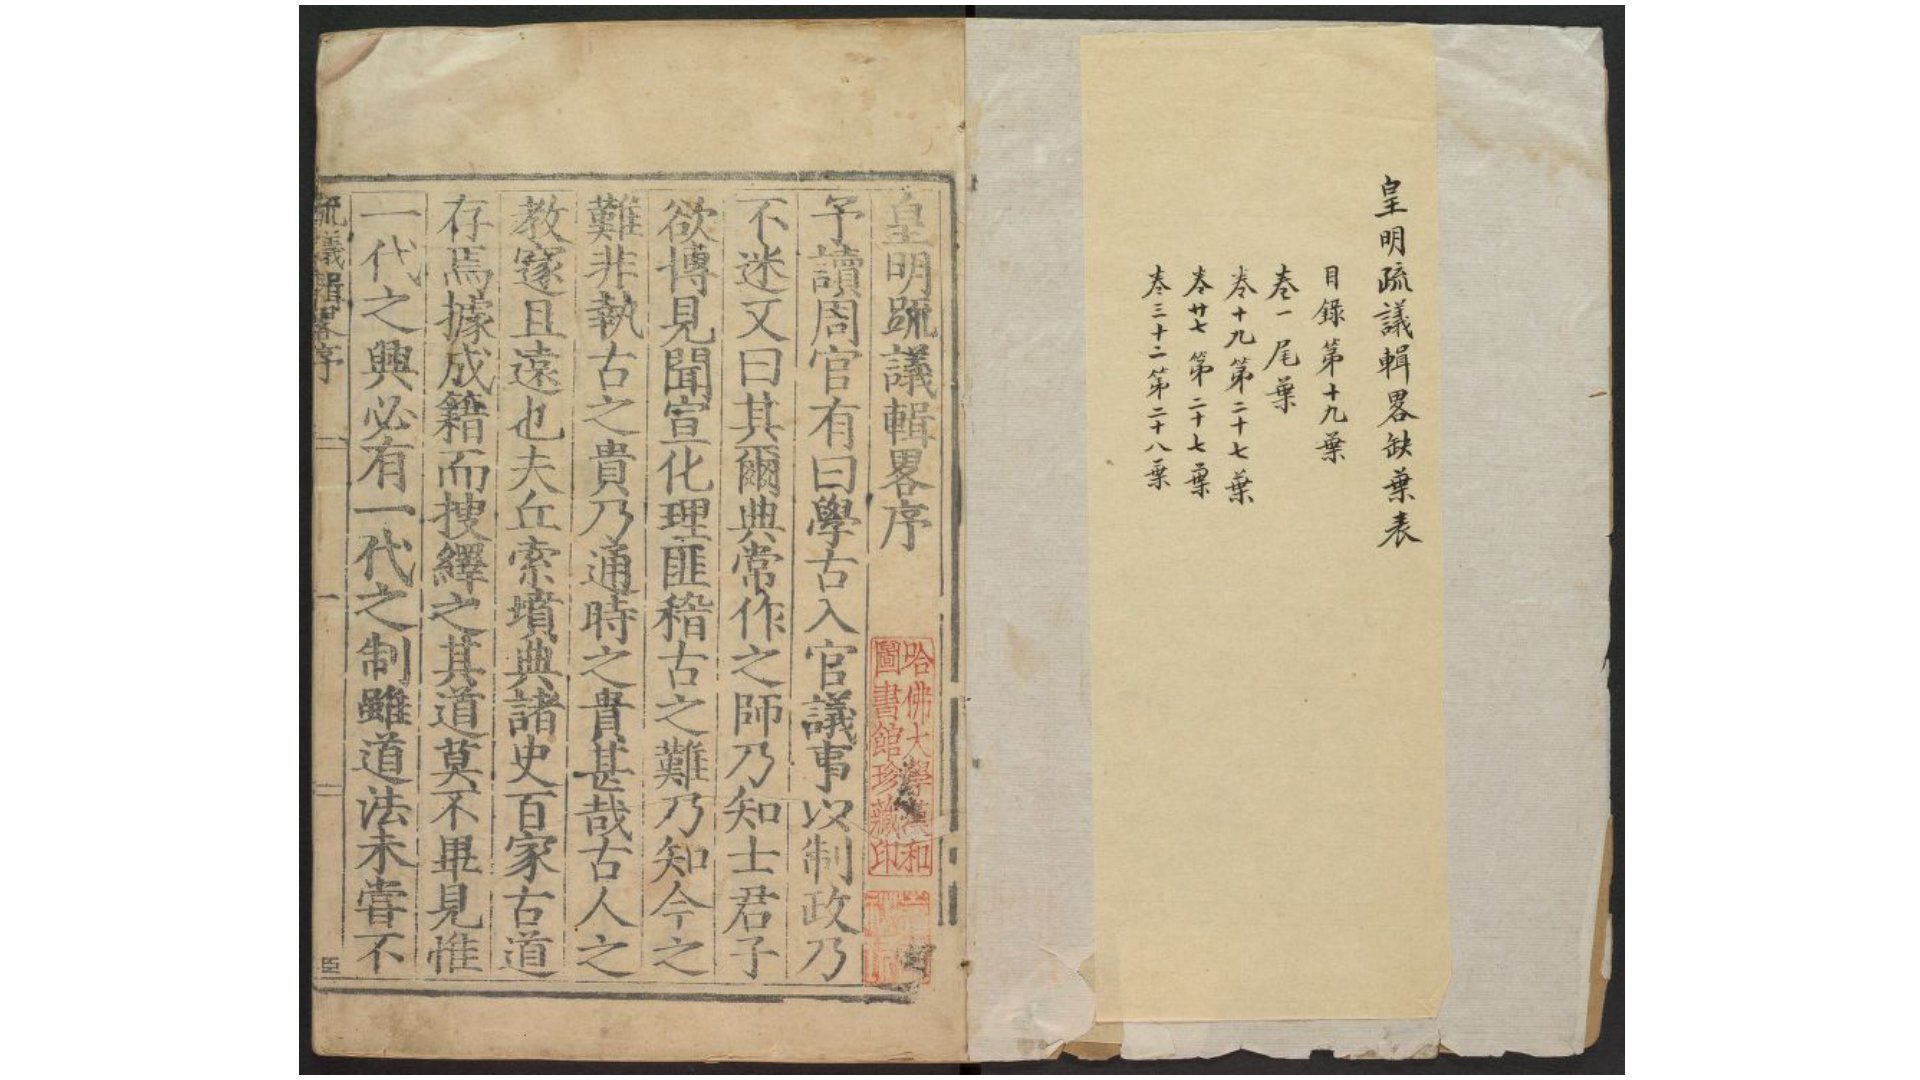 皇明疏議輯畧缺葉表
目録第十九葉
卷一尾葉
卷十九第二十七葉
卷廿七第二十七葉
卷三十二第二十八葉
皇明疏議輯畧序
哈佛大學漢和
圖書館珍藏印
予讀周官有曰學古入官議事以制政乃
不迷又曰其爾典常作之師乃知士君子
欲博見聞宣化理匪稽古之難乃知今之
難非執古之貴乃通時之貴甚哉古人之
教邃且遠也夫丘索墳典諸史百家古道
存焉據成籍而搜繹之其道莫不畢見惟
一代之興必有一代之制雖道法未嘗不
疏議輯畧序
一